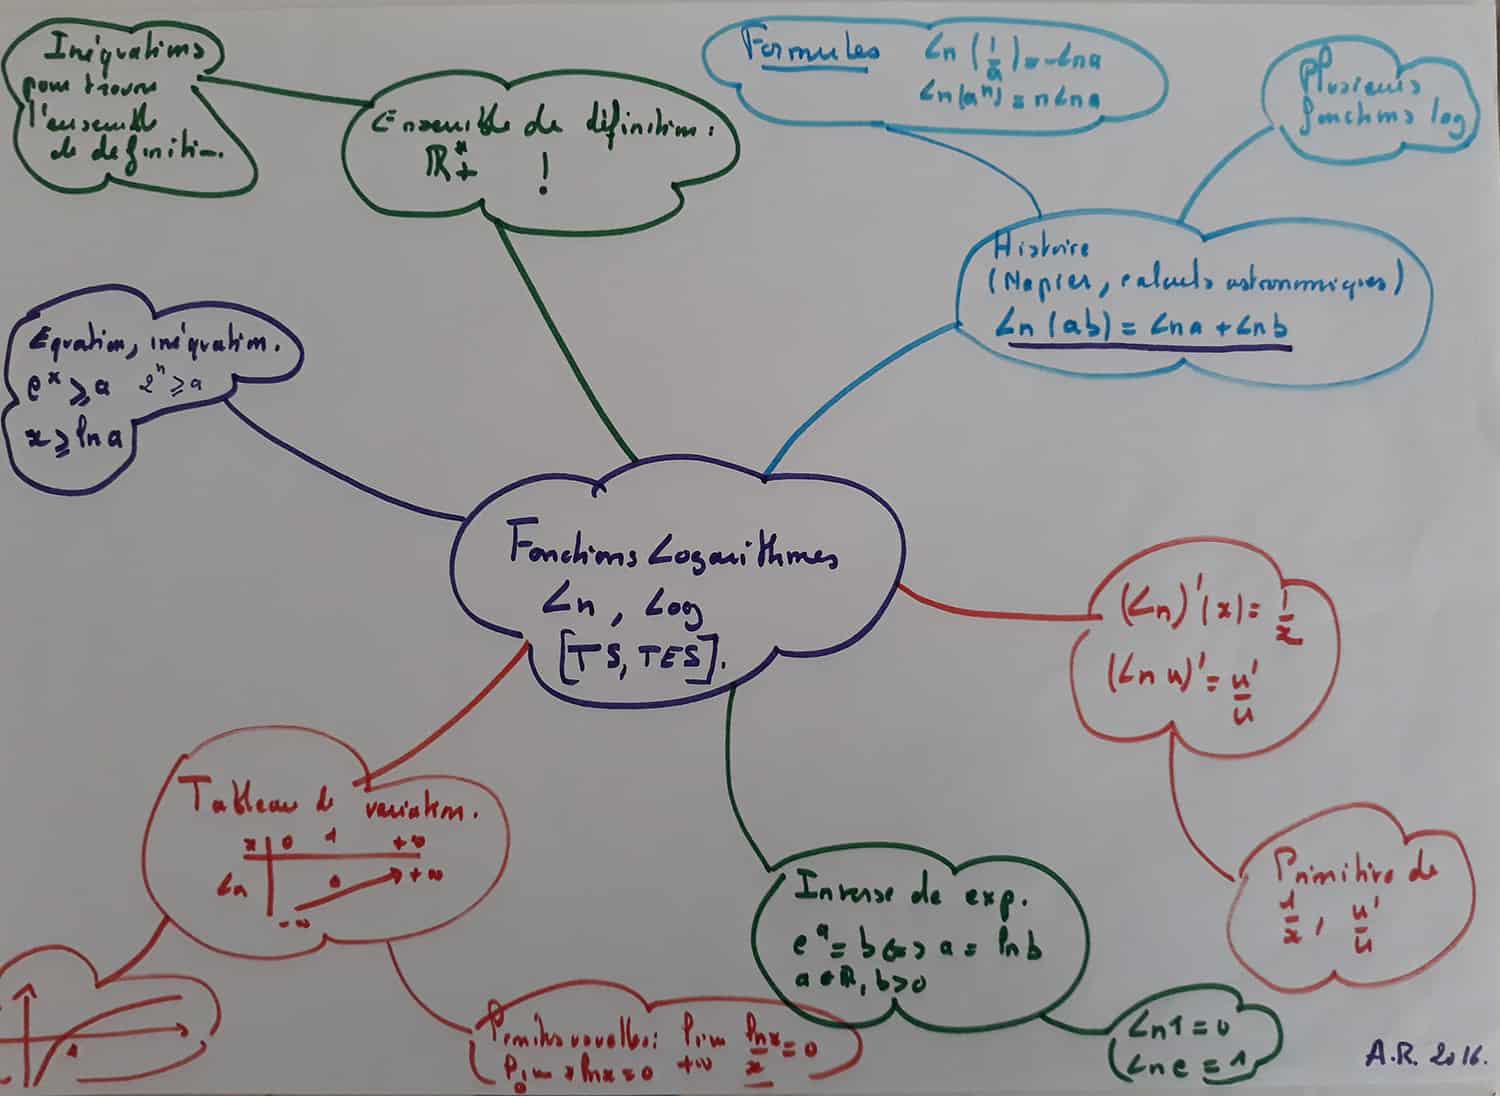 Inéquations
pour trouver
l'ensemble
de définition.
Ensemble de définition :
ℝ*₊ !
Formules Ln(1/a) = -Ln a
Ln(aⁿ) = n Ln a
Plusieurs
fonctions log
Histoire
(Napier, calculs astronomiques)
Ln(ab) = Ln a + Ln b
Equation, inéquation.
eˣ ⩾ a 2ⁿ ⩾ a
x ⩾ ln a
Fonctions Logarithmes
Ln, Log
[TS, TES].
(Ln)'(x) = 1/x
(Ln u)' = u'/u
Primitive de
1/x, u'/u
Tableau de variation.
x 0 1 +∞
Ln -∞ 0 +∞
1
Limites nouvelles : lim ln x/x = 0
+∞
lim x ln x = 0
0
Inverse de exp.
eᵃ = b ⇔ a = ln b
a ∈ ℝ, b > 0
Ln 1 = 0
Ln e = 1
A.R. 2016.